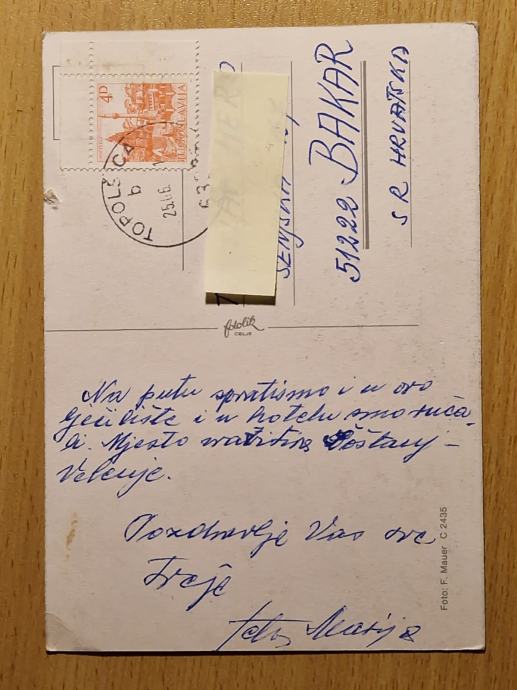 4D
JUGOSLAVIJA
TOPOLŠICA
b
51222 BAKAR
S R. HRVATSKA
fotolik
CELJE
Na putu svratismo i u ovo
lječilište i u hotelu smo ruča-
li. Mjesto Šoštanj -
Velenje.
Pozdravlja Vas sve
Marija
Foto: F. Mauer C 2435